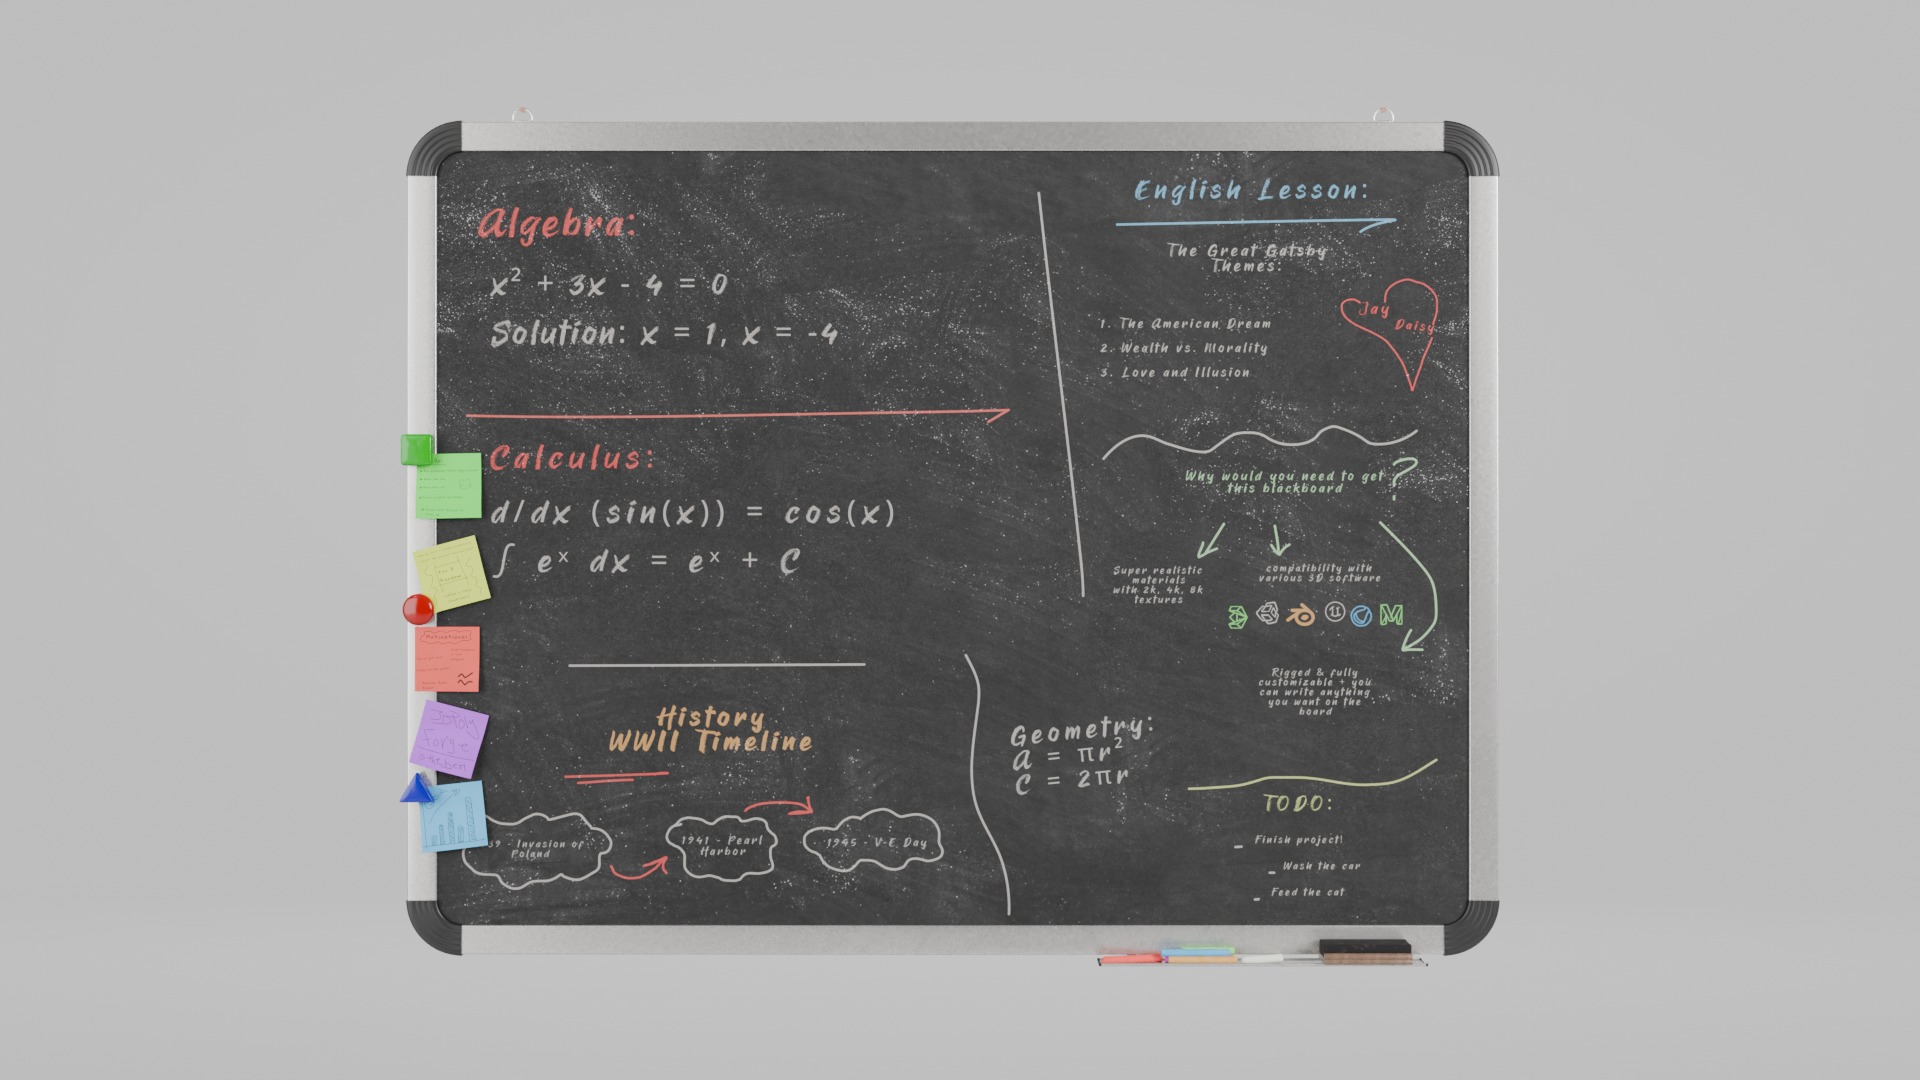 Algebra:
x² + 3x - 4 = 0
Solution: x = 1, x = -4
Calculus:
d/dx (sin(x)) = cos(x)
∫ eˣ dx = eˣ + C
History
WWII Timeline
39 - Invasion of
Poland
1941 - Pearl
Harbor
1945 - V-E Day
Geometry:
A = πr²
C = 2πr
English Lesson:
The Great Gatsby
Themes:
1. The American Dream
2. Wealth vs. Morality
3. Love and Illusion
Jay
Daisy
Why would you need to get
this blackboard
?
Super realistic
materials
with 2k, 4k, 8k
textures
compatibility with
various 3D software
Rigged & fully
customizable + you
can write anything
you want on the
board
TODO:
- Finish project!
- Wash the car
- Feed the cat
Motivational